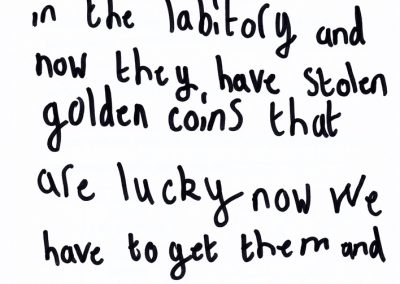 in the labitory and
now they have stolen
golden coins that
are lucky now we
have to get them and